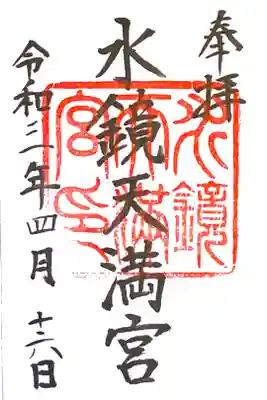 奉拝
水鏡天満宮
令和二年四月十六日
水鏡
天満
宮印